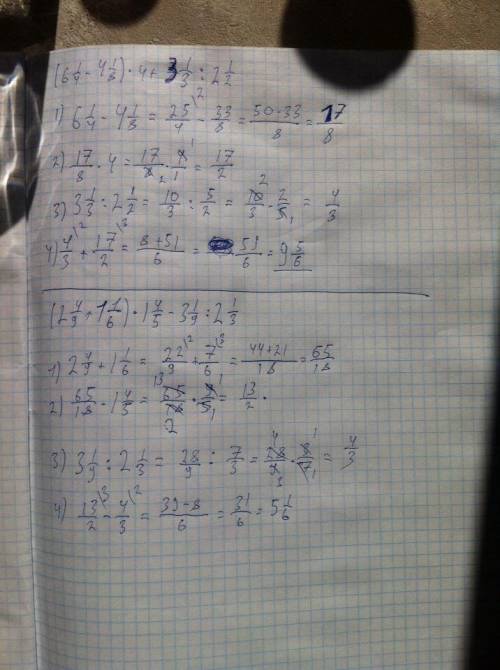 (6 1/4 - 4 1/8) · 4 + 3 1/3 : 2 1/2
1) 6 1/4 - 4 1/8 = 25/4 \2 - 33/8 = 50-33/8 = 17/8
2) 17/8 · 4 = 17/8 2 · 4/1 1 = 17/2
3) 3 1/3 : 2 1/2 = 10/3 : 5/2 = 10/3 2 · 2/5 1 = 4/3
4) 4/3 \2 + 17/2 \3 = 8+51/6 = 59/6 = 9 5/6
(2 4/9 + 1 1/6) · 1 4/5 - 3 1/9 : 2 1/3
1) 2 4/9 + 1 1/6 = 22/9 \2 + 7/6 \3 = 44+21/18 = 65/18
2) 65/18 · 1 4/5 = 13 65/18 2 · 9/5 1 = 13/2 .
3) 3 1/9 : 2 1/3 = 28/9 : 7/3 = 4 28/9 3 · 3/7 1 = 4/3
4) 13/2 \3 - 4/3 \2 = 39-8/6 = 31/6 = 5 1/6